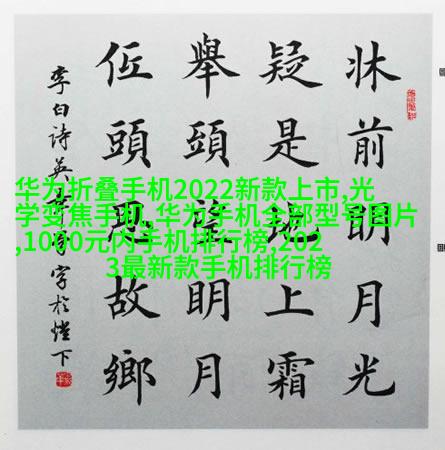 牀前明月光
疑是地上霜
舉頭望明月
低頭思故鄉
李白詩
於燈下
华为折叠手机2022新款上市,光
学变焦手机,华为手机全部型号图片
,1000元内手机排行榜,202
3最新款手机排行榜